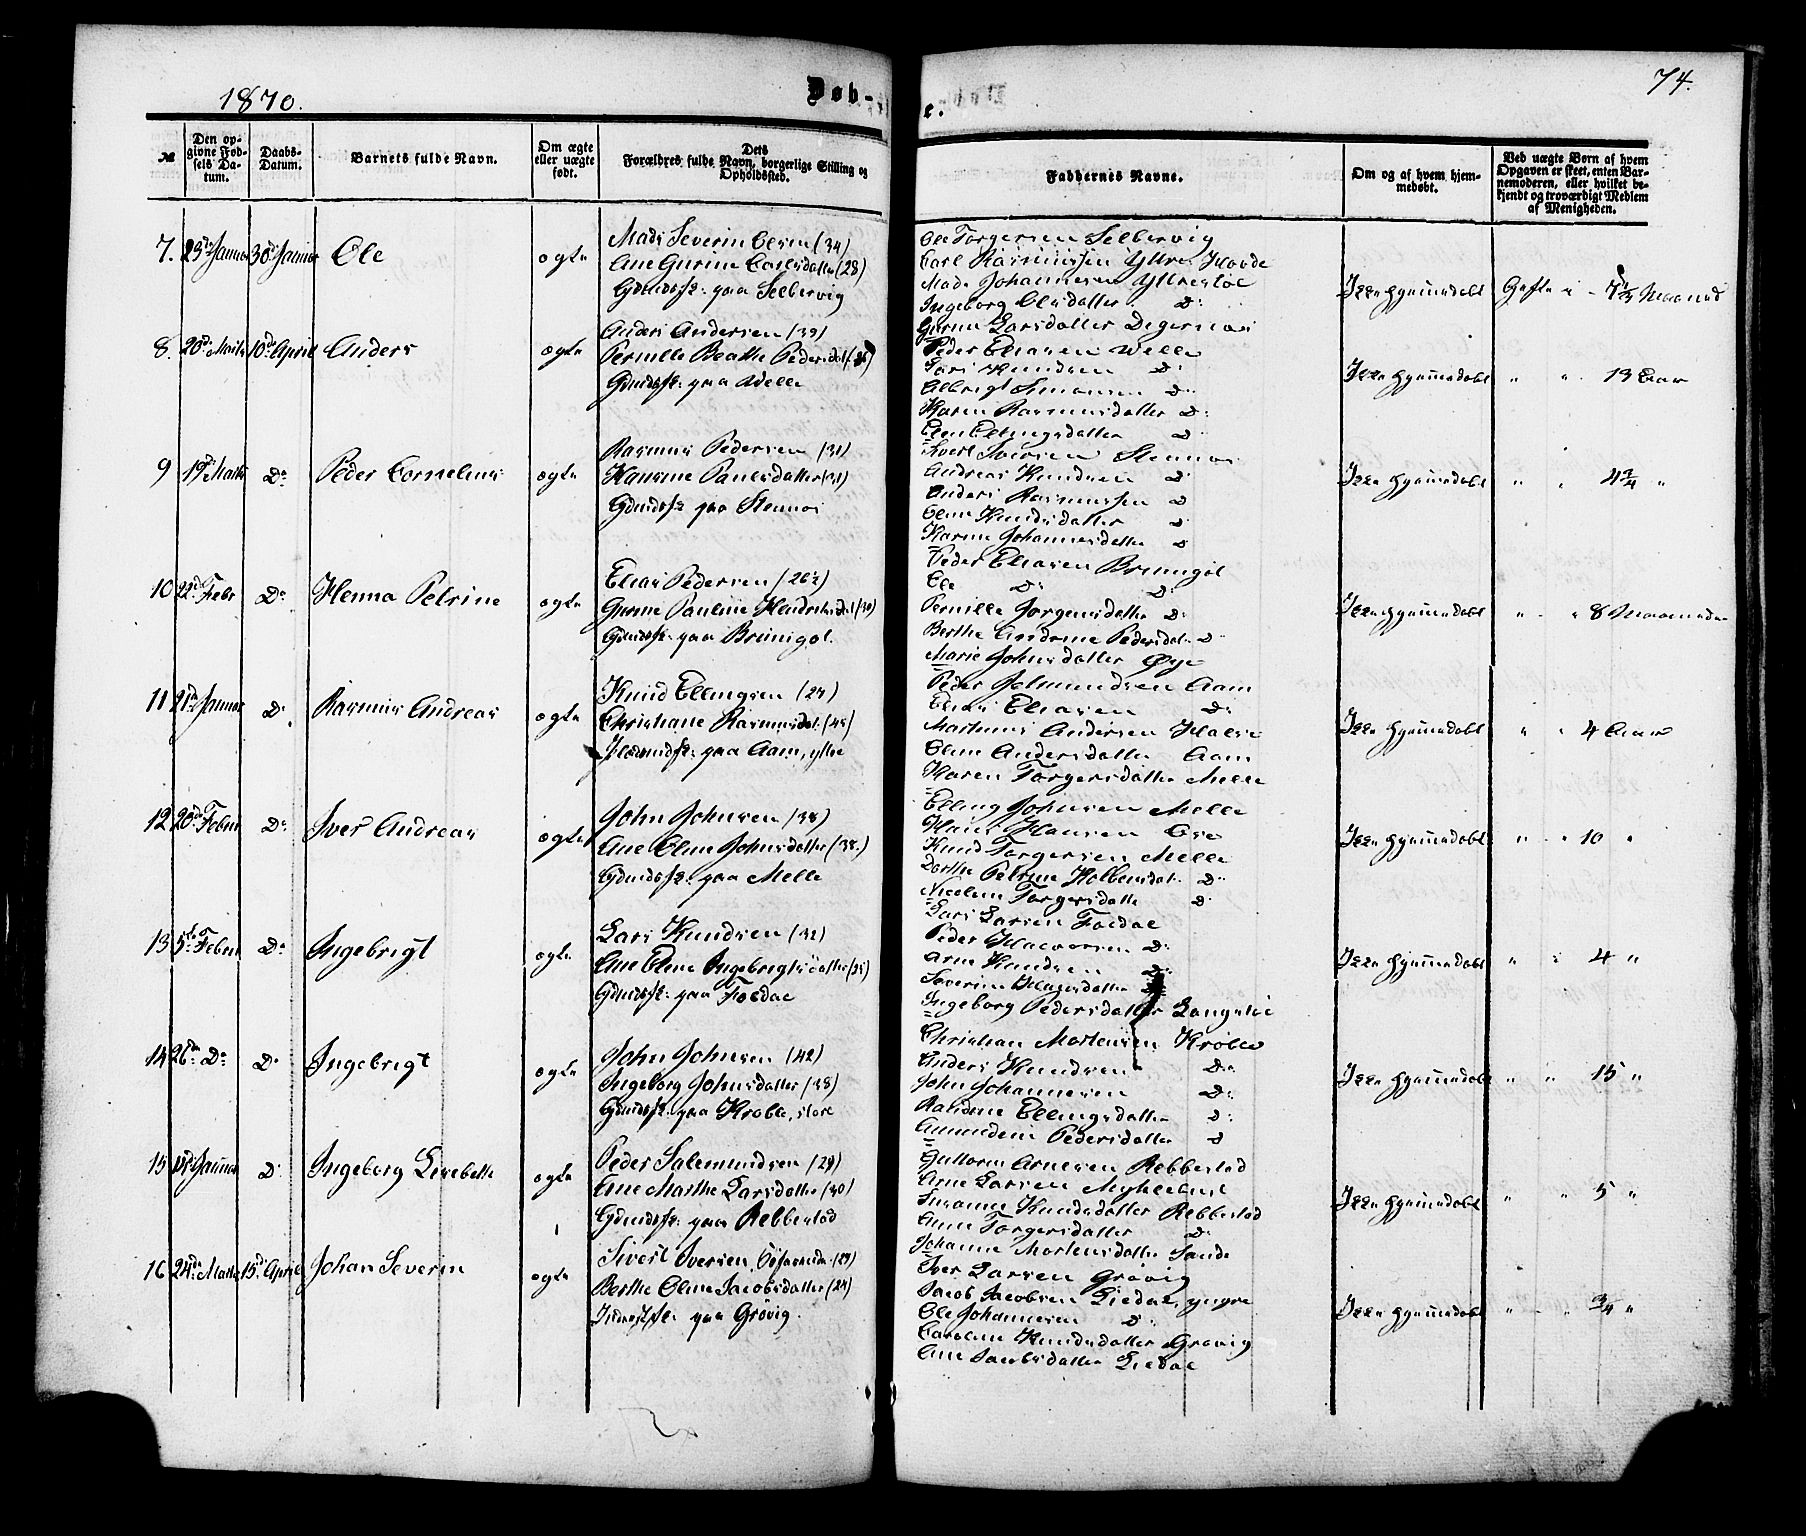 1870.
Døb-
e.
74.
№
Den opgivne Fødsels Datum.
Daabs-Datum.
Barnets fulde Navn.
Om ægte eller uægte født.
Dets Forældres fulde Navn, borgerlige Stilling og Opholdssted.
Faddernes Navne.
Om og af hvem hjemmedøbt.
Ved uægte Børn af hvem Opgaven er skeet, enten Barnemoderen, eller hvilket bekjendt og troværdigt Medlem af Menigheden.
7. 23de Januar 30te Januar Ole ægte
Mads Severin Olsen (34)
Ane Gurine Carlsdatter (28)
Gdmdsf: paa Selbervig
Ole Torgersen Selbervig
Carl Rasmussen Yttre Hovde
Mads Johannesen Yttrestøl
Ingeborg Olsdatter D:
Gurine Larsdatter Degernæs
Ikke hjemmedøbt Gifte i Maaned
8. 20de Marts 10de April Anders ægte
Anders Andersen (39)
Pernille Beathe Pedersdat
Gdmdsf: paa Welle
Peder Eliasen Welle
Lars Knudsen D:
Albrigt Simonsen D:
Karen Rasmusdatter D:
Elen Ellingsdatter D
Ikke hjemmedøbt " " 13 Aar
9 19de Marts Do Peder Cornelius ægte
Rasmus Pedersen (31)
Hansine Paulsdatter (31)
Gdmdsf: paa Stennes
Sivert Iversen Steinnes
Andreas Knudsen D:
Anders Rasmussen D
Eline Knudsdatter D
Karine Johannesdatter D
Ikke hjemmedøbt " " 4¾ "
10 22de Febr Do Henna Petrine ægte
Elias Pedersen (26½)
Gurine Pauline Hendriksdat (30)
Gdmdsf: paa Brunigol
Peder Eliasen Brunigol
Ole D: D:
Pernille Jørgensdatter D:
Berthe Andrine Pedersdat D
Marie Johnsdatter Øye
Ikke hjemmedøbt " " 8 Maaneder
11 21de Januar D: Rasmus Andreas ægte
Knud Ellingsen (27)
Christiane Rasmusdat. (45)
paa Aam, ytre
Peder Salmundsen Aam
Elias Eliasen D:
Martinus Andersen
Eline Andersdatter Aam
Karen Torgersdatter Melle
Ikke hjemmedøbt " " 4 Aar
12 20de Febru Do Iver Andreas ægte
John Johnsen (38)
Ane Eline Johnsdatter (38)
Gdmdsf: paa Melle
Elling Johnsen Melle
Hans Hansen
Knud Torgersen Melle
Dorthe Petrine D:
Nicoline Torgersdatter D:
Ikke hjemmedøbt " " 10 "
13 5te Febru Do Ingebrigt ægte
Lars Knudsen (32)
Ane Eline Ingebrigtsdatter (35)
Gdmdsf: paa Foldal
Lars Larsen Foldal
Peder Halvorsen D:
Arne Knudsen D:
Severine
Ingeborg Pedersdatter Langstøl
Ikke hjemmedøbt " " 4 "
14 26de Do D: Ingebrigt ægte
John Johnsen (42)
Ingeborg Johnsdatter (38)
Gdmdsf: paa Krøvle, store
Christian Mortensen Krøvle
Anders Knudsen D:
John Johannesen D:
Randine Ellingsdatter D:
Pedersdatter D
Ikke hjemmedøbt " " 15 "
15 Januar D: Ingeborg Lisebette ægte
Peder Salemundsen (29)
Ane Marthe Larsdatter (30)
Gdmdsf: paa Rebbestad
Guttorm Arnesen Rebbestad
Arne Larsen Myklebust
Susanne Knudsdatter Rebbestad
Anne Torgersdatter D:
Johanne Mortensdatter Sande
Ikke hjemmedøbt " " 5 "
16 24de Marts 15de April Johan Severin ægte
Sivert Iversen, (29)
Berthe Oline Jacobsdatter (24)
paa Grøvig.
Iver Larsen Grøvig
Jacob Jacobsen Liedal, yngre
Ole Johannesen D:
Caroline Knudsdatter Grøvig
Ane Jacobsdatter Liedal
Ikke hjemmedøbt " " ¾ "